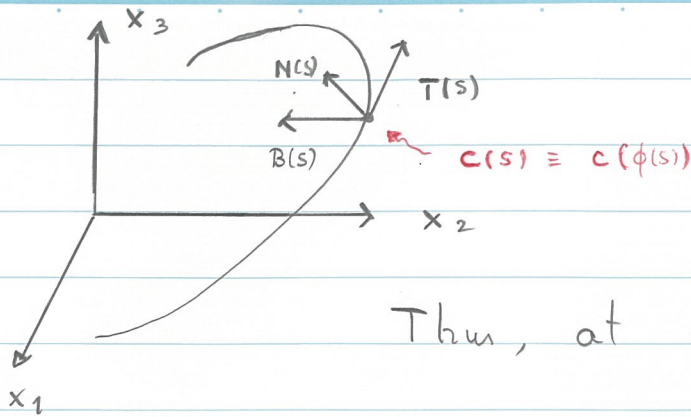 X3
N(S)
T(S)
B(S)
C(S) ≡ C(ϕ(S))
X2
Thus, at
X1